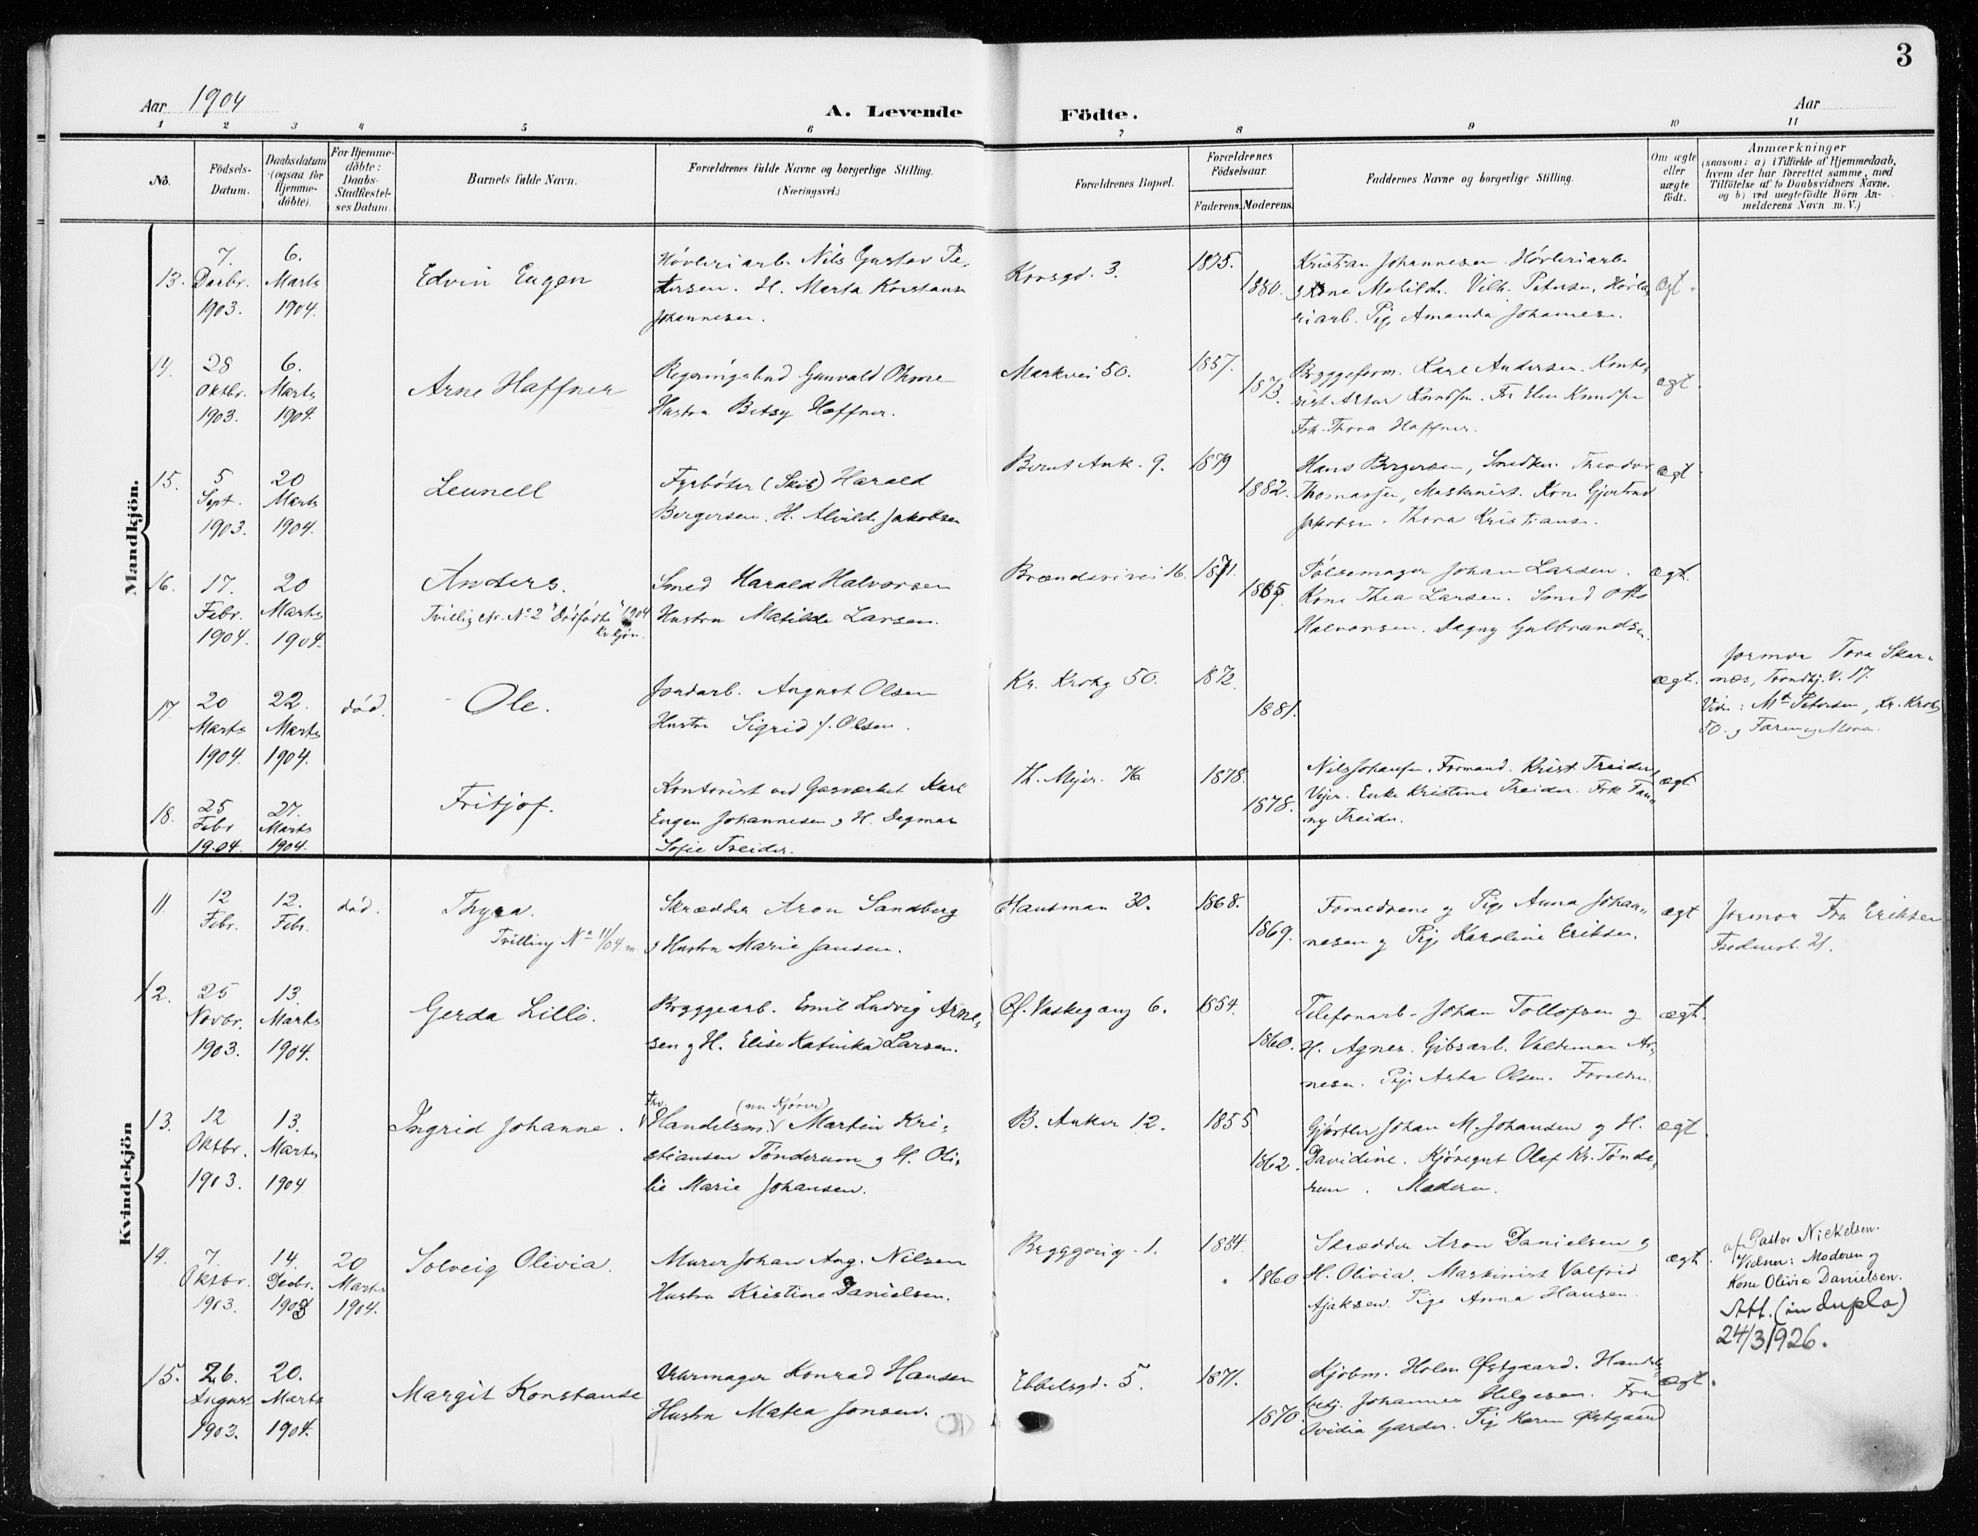 3
Aar 1904
A. Levende Födte.
Aar
1 2 3 4 5 6 7 8 9 10 11
No.
Födsels-Datum.
Daabsdatum (ogsaa for Hjemme-döbte).
For Hjemme-döbte: Daabs-Stadfæstel-ses Datum.
Barnets fulde Navn.
Forældrenes fulde Navne og borgerlige Stilling. (Næringsvei.)
Forældrenes Bopæl.
Forældrenes Födselsaar.
Faderens. Moderens.
Faddernes Navne og borgerlige Stilling.
Om ægte eller uægte födt.
Anmærkninger
(saasom: a) i Tilfælde af Hjemmedaab, hvem der har forrettet samme, med Tilföielse af to Daabsvidners Navne, og b) ved uægtefödte Börn Anmelderens Navn m. V.)
Mandkjön.
13. 7. Decbr. 1903. 6. Marts 1904.
Edvin Eugen
Høvleriarb. Nils Gustav Petersen. H. Marta Konstanse Johannesen.
Korsgd. 3.
1875. 1880.
Kristian Johannesen Høvleriarb. Kone Matilde. Vilh. Petersen, Høvleriarb. Pige Amanda Johannesen
ægt.
14. 28 Oktbr. 1903. 6. Marts 1904.
Arne Haffner
Regjeringsbud Gunvald Ohme Hustru Betsy Haffner.
Markvei 50.
1857. 1873.
Byggeform. Karl Andersen. Kontorist Knudsen. Frk. Thora Haffner.
ægt
15. 5 Sept. 1903. 20 Marts 1904.
Leunell
Fyrbøter (Skib) Harald Bergersen. H. Alvilde Jakobsen
Bernt Ank. 9.
1879 1882.
Hans Bergersen, Snedker. Theodor Thomassen, Maskinist. Kone Gjertrud Jakobsen. Thora Kristiansen.
ægt
16. 17. Febr. 1904. 20 Marts 1904.
Anders.
Tvilling etr. No. 2 "Dødfødte" 1904 Kv.kjøn.
Smed Harald Halvorsen Hustru Matilde Larsen.
16. 1871.
Pølsemager Johan Larsen. Kone Thea Larsen. Smed Otto Halvorsen. Dagny Gulbrandsen.
ægt.
17. 20 Marts 1904. 22. Marts 1904. død.
Ole.
Jordarb. August Olsen Hustru Sigrid f. Olsen.
Kr. Krohg 50.
1872. 1881.
ægt.
Jormor Tora Skarnæs, Trondhj. V. 17. Vidn: Petersen, Kr. Krohg 50. og Faren og Moren.
18. 25 Febr 1904. 27. Marts 1904.
Fritjof.
Kontorist ved Gasværket Karl Eugen Johannesen og H. Dagmar Sofie Treider.
Th. Mejer.
1878. 1878.
Nils Johansen, Formand. Krist. Treider, Vejer. Enke Kristine Treider. Frk Fanny Treider.
ægt
Kvindekjön
11. 12 Febr. 12. Febr. død.
Thyra.
Tvilling No 11/04. m.
Skrædder Aron Sandberg og Hustru Marie Jansen.
Hausman 30.
1868. 1869.
Forældrene og Pige Anna Johannesen og Pige Karoline Eriksen.
ægt
Jormor Fru Eriksen 21.
12. 25 Novbr. 1903. 13. Marts 1904.
Gerda Lilli.
Bryggearb. Emil Ludvig Arnesen og H. Elise Katinka Larsen.
Ø. Vaskegang 6.
1854. 1860.
Telefonarb. Johan Tollofsen og H. Agnes. Gibsarb. Valdemar Arnesen. Pige Asta Olsen. Forældre.
ægt.
13. 12 Oktbr. 1903. 13. Marts 1904
Ingrid Johanne.
fhv. Handelsm. (nu Kjører) Martin Kristiansen Tønderum og H. Olilie Marie Johansen.
B. Anker 12.
1855. 1862.
Gjørtler Johan M. Johansen og H. Davidine. Kjøregut Olaf Kr. Tønderum. Moderen.
ægt.
14. 7. Oktbr. 1903. 14. Decbr. 1903 20 Marts 1904.
Solveig Olivia.
Murer Johan Aug. Nilsen Hustru Kristine Danielsen.
1.
1854. 1860
Skrædder Aron Danielsen og H. Olivia. Maskinist Valfrid Ajaksen. Pige Anna Hansen.
ægt.
af Pastor Nickelsen. Vidner: Moderen og Kone Olivia Danielsen.
Att. (in duplo) 24/3 1926.
15. 26. August 1903. 20. Marts 1904.
Margit Konstanse
Urmager Konrad Hansen Hustru Matea Jonsen.
Ebbelsgd. 5.
1871. 1870.
Kjøbm. Holen Østgaard. Johannes Helgesen. Garder. Pige Karen Østgaard
ægt.